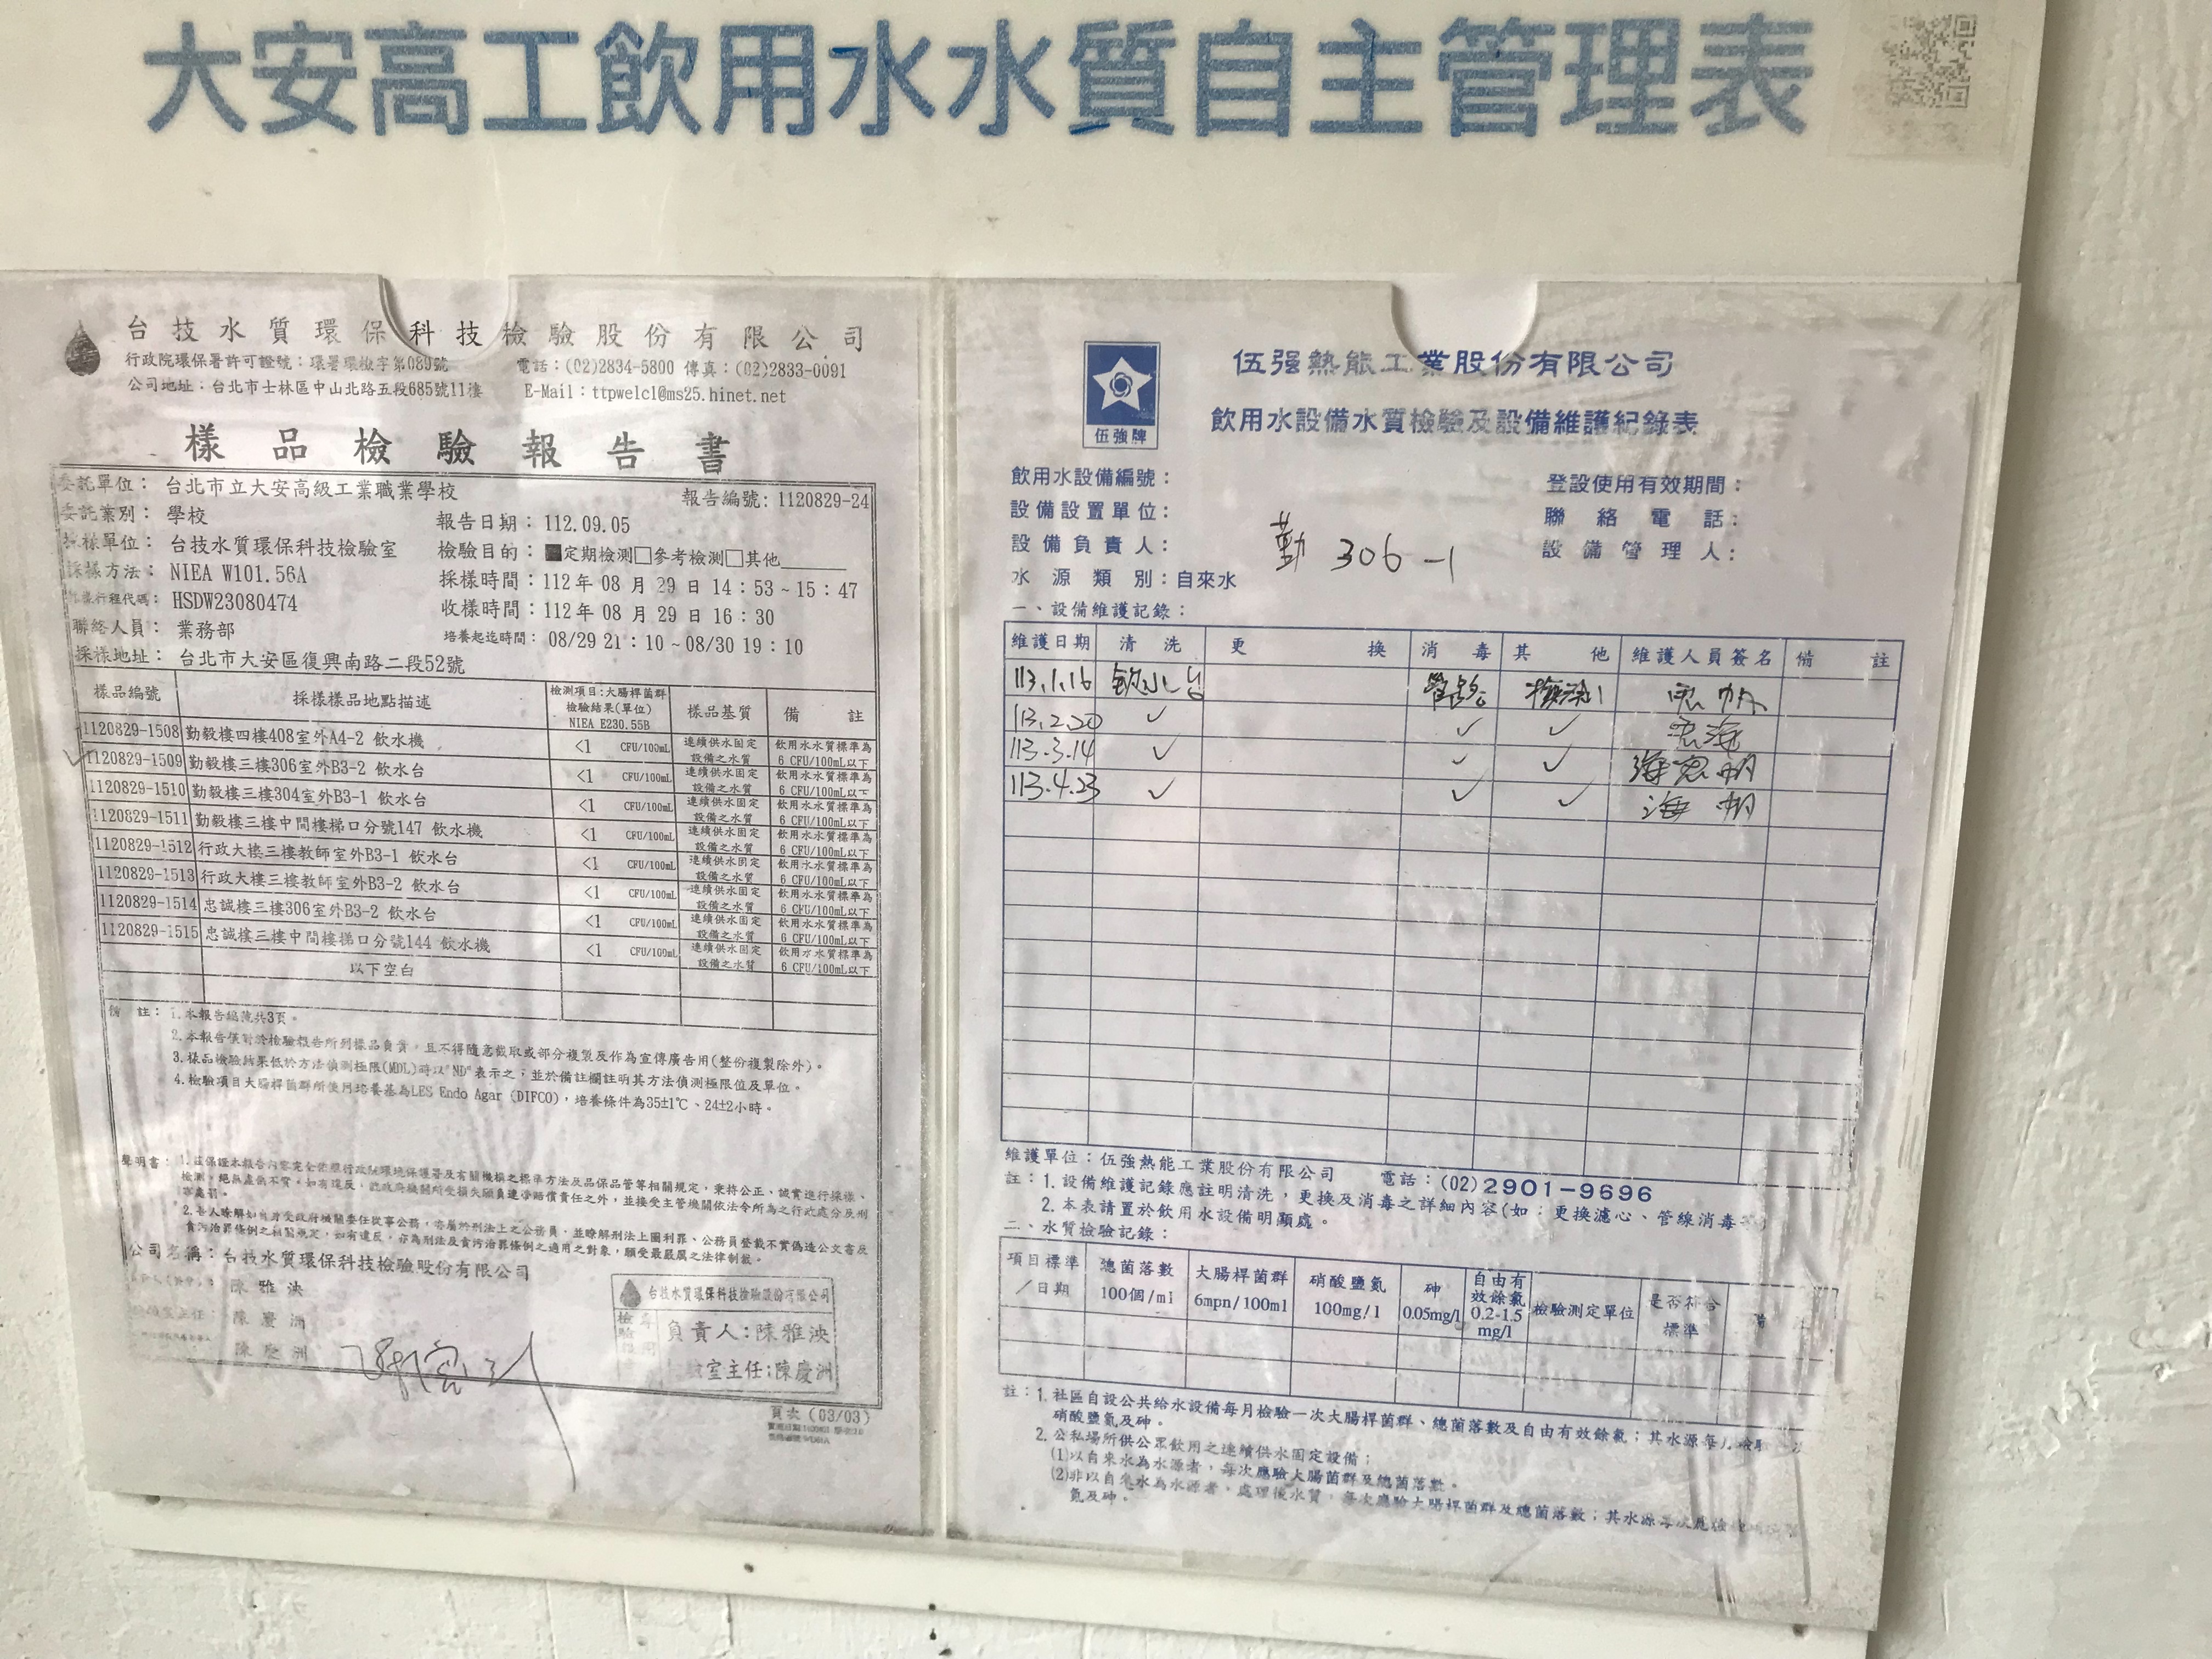 大安高工飲用水水質自主管理表
台技水質環保科技檢驗股份有限公司
行政院環保署許可證號：環署環檢字第089號 電話：(02)2834-5800 傳真：(02)2833-0091
公司地址：台北市士林區中山北路五段685號11樓 E-Mail：ttpwelcl@ms25.hinet.net
樣品檢驗報告書
委託單位：台北市立大安高級工業職業學校 報告編號：1120829-24
委託業別：學校 報告日期：112.09.05
採樣單位：台技水質環保科技檢驗室 檢驗目的：■定期檢測□參考檢測□其他
採樣方法：NIEA W101.56A 採樣時間：112年08月29日14：53~15：47
行程代碼：HSDW23080474 收樣時間：112年08月29日16：30
聯絡人員：業務部 培養起迄時間：08/29 21：10~08/30 19：10
採樣地址：台北市大安區復興南路二段52號
樣品編號 採樣樣品地點描述 檢測項目：大腸桿菌群 檢驗結果(單位) NIEA E230.55B 樣品基質 備註
1120829-1508 勤毅樓四樓408室外A4-2 飲水機 <1 CFU/100mL 連續供水固定設備之水質 飲用水水質標準為6 CFU/100mL以下
1120829-1509 勤毅樓三樓306室外B3-2 飲水台 <1 CFU/100mL 連續供水固定設備之水質 飲用水水質標準為6 CFU/100mL以下
1120829-1510 勤毅樓三樓304室外B3-1 飲水台 <1 CFU/100mL 連續供水固定設備之水質 飲用水水質標準為6 CFU/100mL以下
1120829-1511 勤毅樓三樓中間樓梯口分號147 飲水機 <1 CFU/100mL 連續供水固定設備之水質 飲用水水質標準為6 CFU/100mL以下
1120829-1512 行政大樓三樓教師室外B3-1 飲水台 <1 CFU/100mL 連續供水固定設備之水質 飲用水水質標準為6 CFU/100mL以下
1120829-1513 行政大樓三樓教師室外B3-2 飲水台 <1 CFU/100mL 連續供水固定設備之水質 飲用水水質標準為6 CFU/100mL以下
1120829-1514 忠誠樓三樓306室外B3-2 飲水台 <1 CFU/100mL 連續供水固定設備之水質 飲用水水質標準為6 CFU/100mL以下
1120829-1515 忠誠樓三樓中間樓梯口分號144 飲水機 <1 CFU/100mL 連續供水固定設備之水質 飲用水水質標準為6 CFU/100mL以下
以下空白
備註：1.本報告編號共3頁。
2.本報告僅對於檢驗報告所列樣品負責，且不得隨意截取或部分複製及作為宣傳廣告用(整份複製除外)。
3.樣品檢驗結果低於方法偵測極限(MDL)時以"ND"表示之；並於備註欄註明其方法偵測極限值及單位。
4.檢驗項目大腸桿菌群所使用培養基為LES Endo Agar (DIFCO)，培養條件為35±1℃、24±2小時。
聲明書：1.茲保證本報告內容完全依照行政院環境保護署及有關機構之標準方法及品保品管等相關規定，秉持公正、誠實進行採樣、
檢測。絕無虛偽不實，如有違反，就政府機關所受損失願負連帶賠償責任之外，並接受主管機關依法令所為之行政處分及刑
事處罰。
2.吾人瞭解如自身受政府機關委任從事公務，亦屬於刑法上之公務員，並瞭解刑法上圖利罪、公務員登載不實偽造公文書及
貪污治罪條例之相關規定，如有違反，亦為刑法及貪污治罪條例之適用之對象，願受最嚴厲之法律制裁。
公司名稱：台技水質環保科技檢驗股份有限公司
陳雅泱
陳慶洲
陳慶洲
台技水質環保科技檢驗股份有限公司
負責人：陳雅泱
室主任：陳慶洲
頁次(03/03)
伍強牌
伍强熱能工業股份有限公司
飲用水設備水質檢驗及設備維護紀錄表
飲用水設備編號： 登設使用有效期間：
設備設置單位： 聯絡電話：
設備負責人： 勤 306-1 設備管理人：
水源類別：自來水
一、設備維護記錄：
維護日期 清洗 更換 消毒 其他 維護人員簽名 備註
113.1.16
113.2.20 ✓ ✓ ✓
113.3.14 ✓ ✓ ✓
113.4.23 ✓ ✓ ✓
維護單位：伍強熱能工業股份有限公司 電話：(02)2901-9696
註：1.設備維護記錄應註明清洗，更換及消毒之詳細內容(如：更換濾心、管線消毒
2.本表請置於飲用水設備明顯處。
二、水質檢驗記錄：
項目標準／日期 總菌落數 100個/ml 大腸桿菌群 6mpn/100ml 硝酸鹽氮 100mg/l 砷 0.05mg/l 自由有效餘氯 0.2-1.5 mg/l 檢驗測定單位 是否符合標準 備
註：1.社區自設公共給水設備每月檢驗一次大腸桿菌群、總菌落數及自由有效餘氯；其水源每
硝酸鹽氮及砷。
2.公私場所供公眾飲用之連續供水固定設備：
(1)以自來水為水源者，每次應驗大腸菌群及總菌落數。
(2)非以自來水為水源者，處理後水質，每次應驗大腸桿菌群及總菌落數；其水源每次應檢
氮及砷。